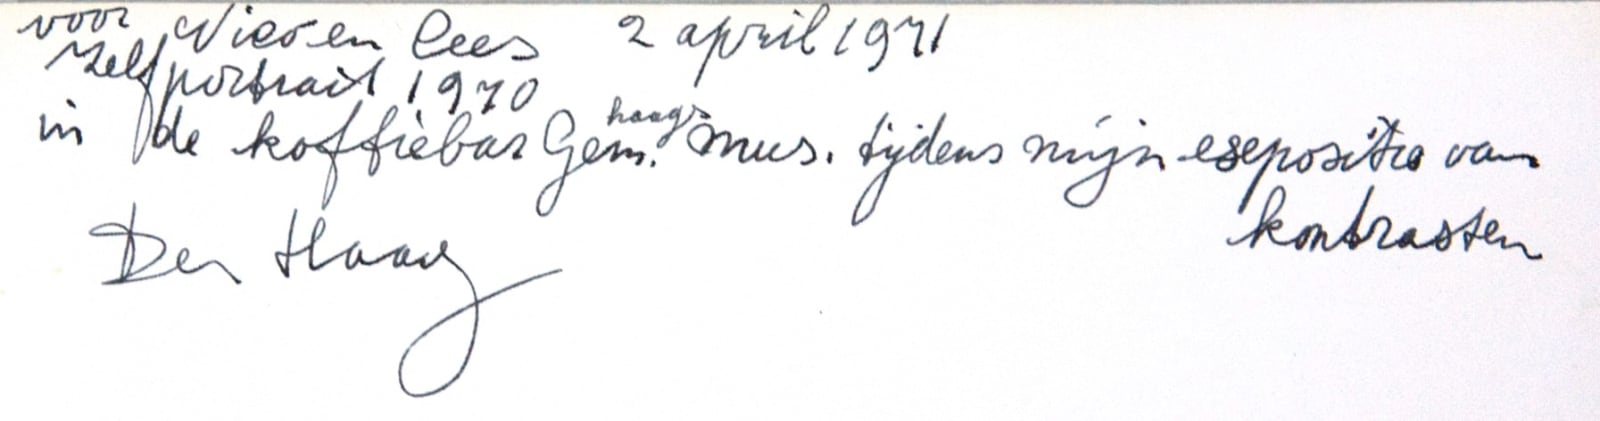 voor Nico en Cees 2 april 1971
zelfportrait 1970
in de koffiebar Gem. haags mus. tijdens mijn eseposítie van
kontrasten
Den Haag